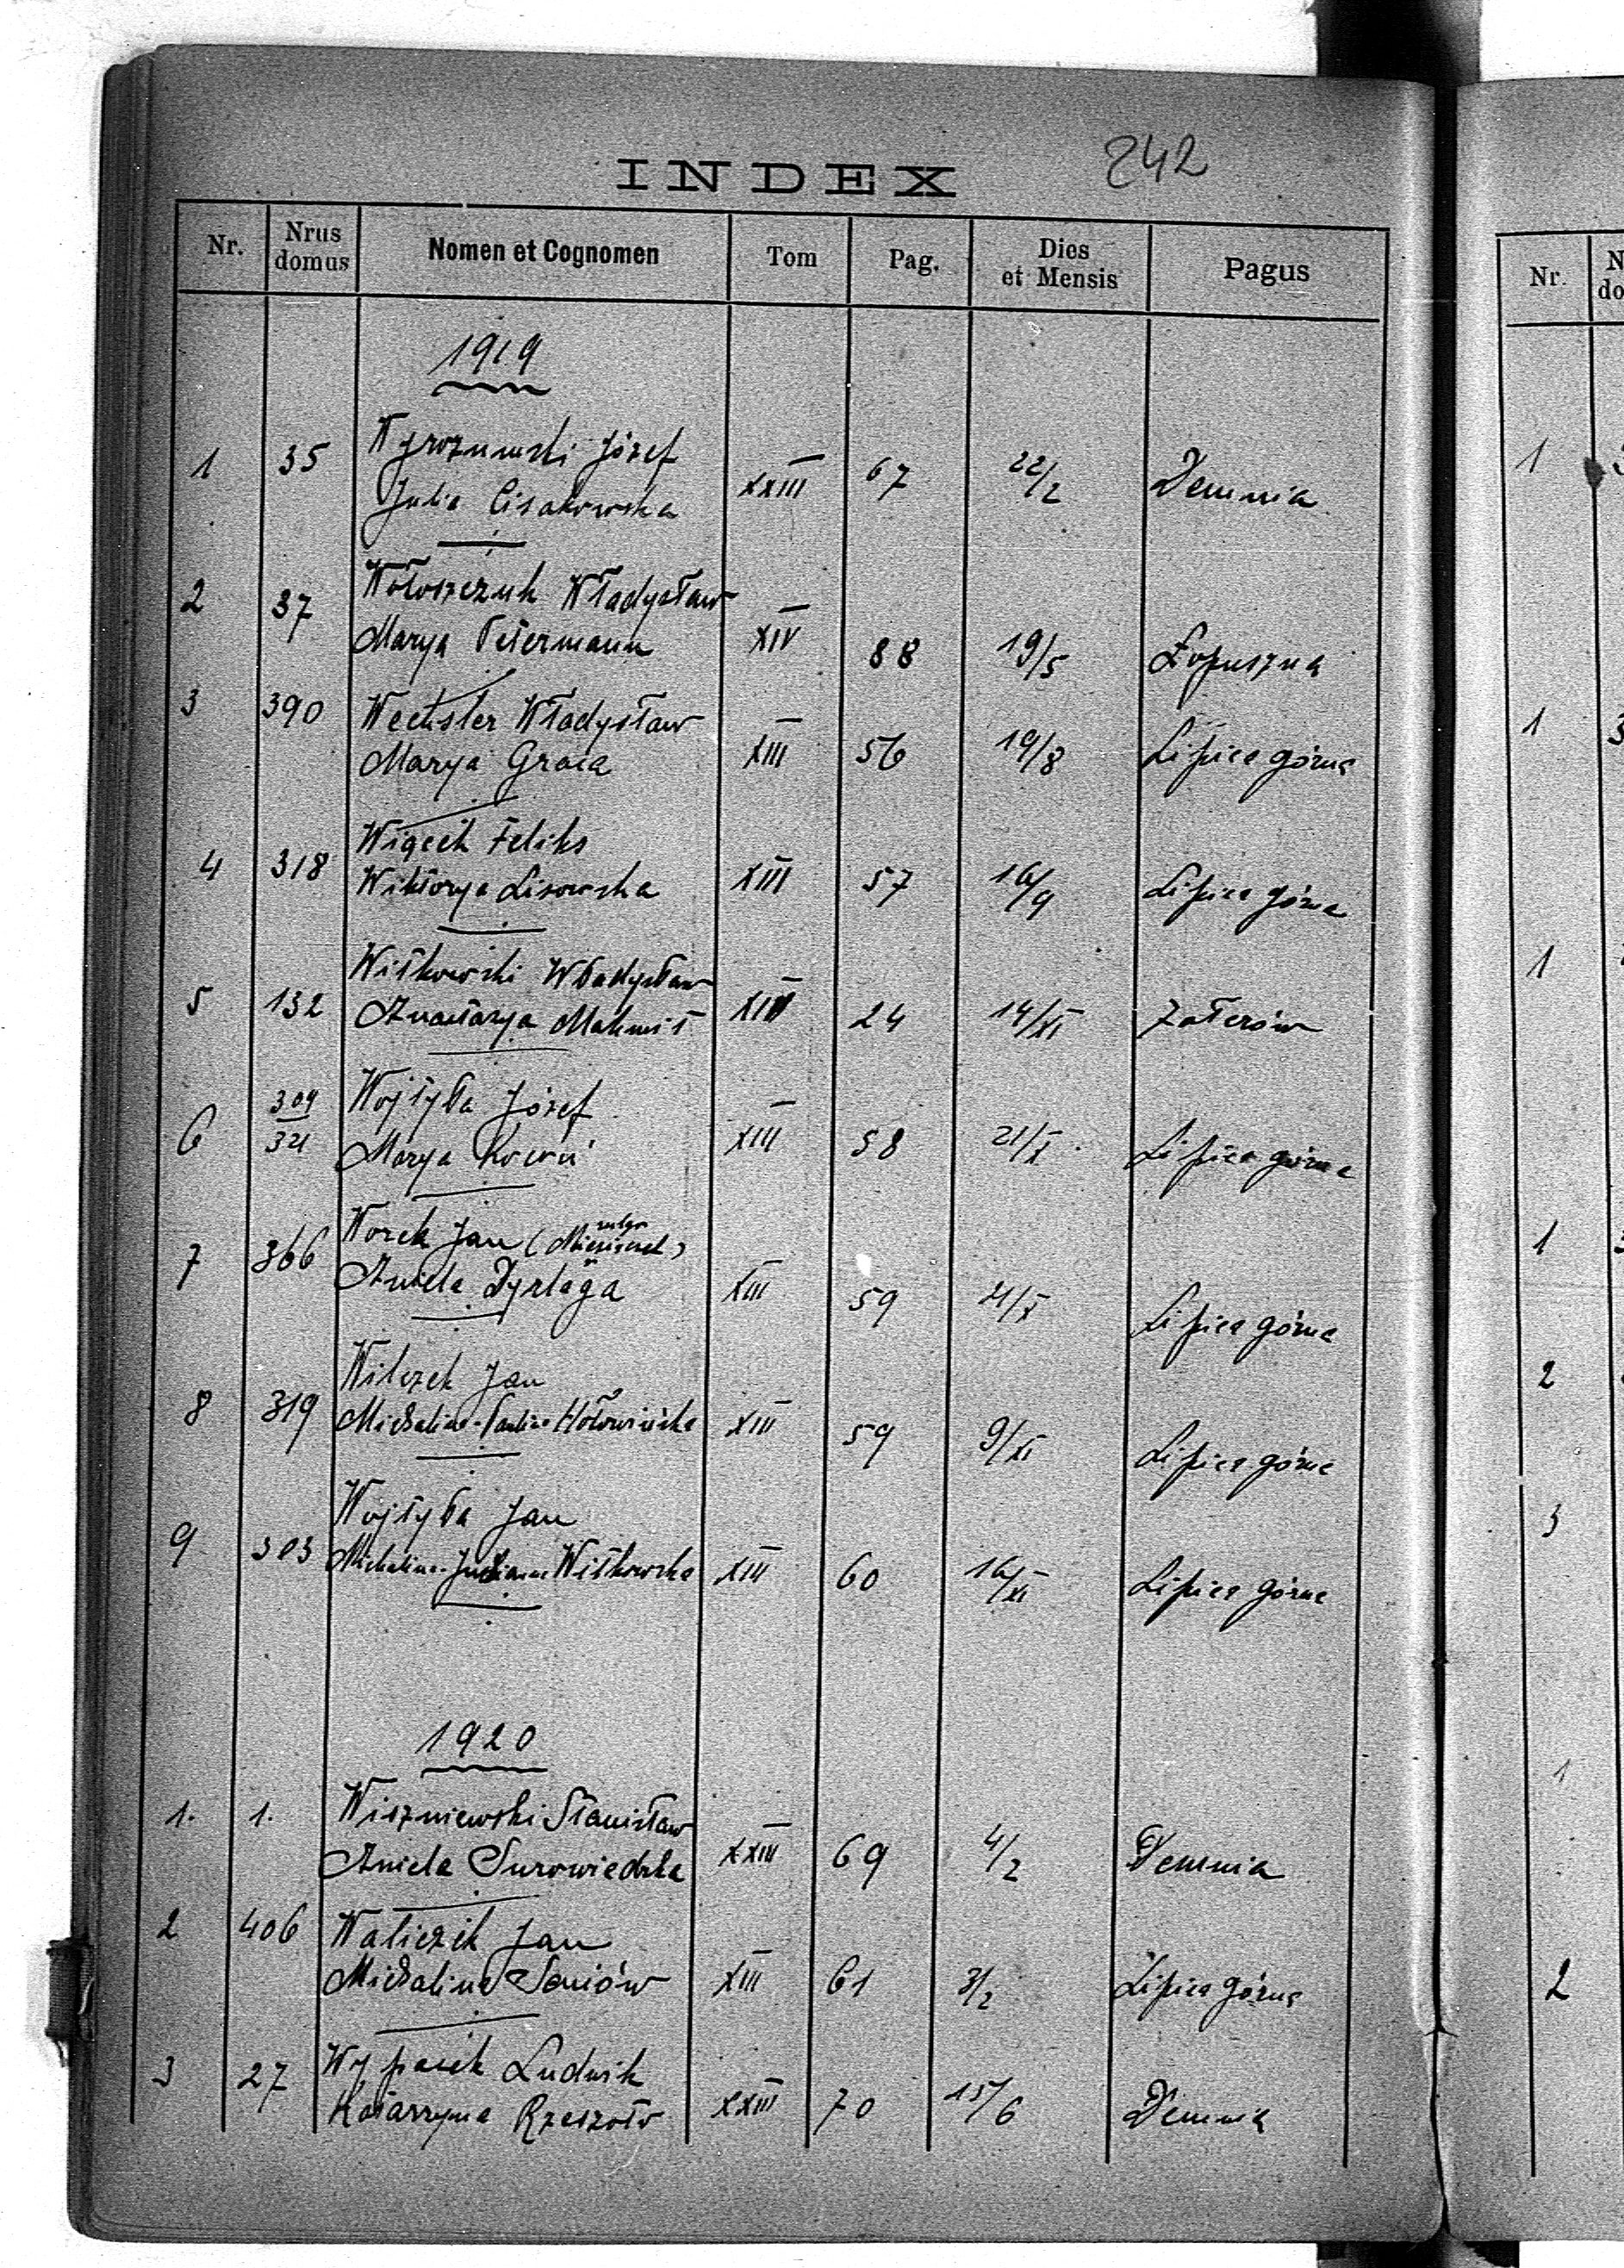 242
INDEX
Nr. Nrus domus Nomen et Cognomen Tom Pag. Dies et Mensis Pagus
1919
1 35 Wyrozumski Józef
Julia Cisakowska XXIII 67 22/2 Demnia
2 37 Wołoszczuk Władysław
Marya Petermann XIV 88 19/5 Łopuszna
3 390 Wechsler Władysław
Marya Graca XIII 56 19/8 Lipica górna
4 318 Wiącek Feliks
Wiktorya Lisowska XIII 57 16/9 Lipica górna
5 132 Witkowski Władysław
Anastazya 24 14/XI Załerów
6 309/321 Wojtyła Józef
Marya XIII 58 21/X Lipica górna
7 366 Worek Jan (vulgo
Aniela Dyrlaga XIII 59 21/X Lipica górna
8 319 Wilczek Jan
Michalina-Paulina Hołowińska XIII 59 9/XI Lipica górna
9 303 Wojtyła Jan
Michalina-Julianna Witkowska XIII 60 16/XI Lipica górna
1920
1. 1. Wiszniewski Stanisław
Aniela Surowiecka XXIII 69 4/2 Demnia
2 406 Waliczek Jan
Michalina Saniów XIII 61 3/2 Lipica górna
3 27 Wypasek Ludwik
Katarzyna Rzeszoto XXIII 70 15/6 Demnia
Nr.
1
1
1
1
2
3
1
2